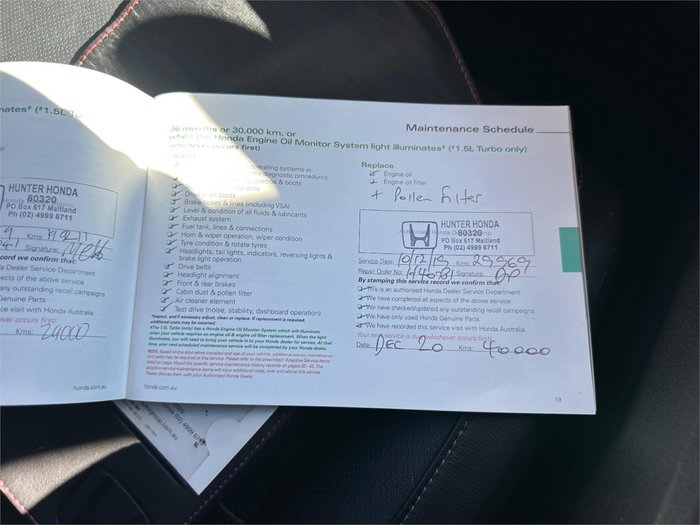 Maintenance Schedule
36 months or 30,000 km, or
when the Honda Engine Oil Monitor System light illuminates# (#1.5L Turbo only)
whichever occurs first)
operating systems in
diagnostic procedures
boots
Brake hoses & lines (including VSA)
Level & condition of all fluids & lubricants
Exhaust system
Fuel tank, lines & connections
Horn & wiper operation, wiper condition
Tyre condition & rotate tyres
Headlights, tail lights, indicators, reversing lights &
brake light operation
Drive belts
Headlight alignment
Front & rear brakes
Cabin dust & pollen filter
Air cleaner element
Test drive (noise, stability, dashboard operation)
*Inspect, and if necessary adjust, clean or replace. If replacement is required,
additional costs may be incurred.
#The 1.5L Turbo (only) has a Honda Engine Oil Monitor System which will illuminate
when your vehicle requires an engine oil & engine oil filter replacement. When the light
illuminates, you will need to bring your vehicle in to your Honda dealer for service. At that
time, your next scheduled maintenance service will be completed by your Honda dealer
NOTE: Based on the kilometres travelled and age of your vehicle, additional service maintenance
and parts may be required at this service. Please refer to the prescribed 'Adaptive Service Items'
Please discuss them with your Authorised Honda Dealer.
honda.com.au
Replace
Engine oil
Engine oil filter
+ Pollen filter
HUNTER HONDA
80320
PO Box 617 Maitland
Ph (02) 4999 6711
Service Date: 10/12/19 Kms: 29969
Repair Order No: Signature:
By stamping this service record we confirm that:
This is an authorised Honda Dealer Service Department
We have completed all aspects of the above service
We have checked/updated any outstanding recall campaigns
We have only used Honda Genuine Parts
We have recorded this service visit with Honda Australia
Your next service is due (whichever occurs first):
Date: DEC 20 Kms: 40000
19
(#1.5L
HUNTER HONDA
80320
PO Box 617 Maitland
Ph (02) 4999 6711
Kms:
Signature:
cord we confirm that:
a Dealer Service Department
aspects of the above service
any outstanding recall campaigns
Genuine Parts
ce visit with Honda Australia
ever occurs first):
Kms: 24000
honda.com.au